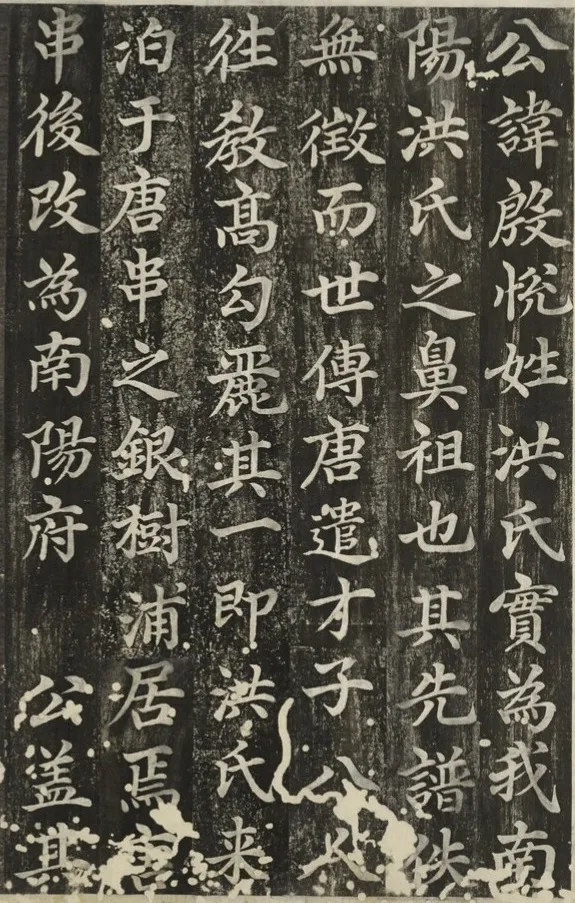 公諱殷悅姓洪氏實為我南
陽洪氏之鼻祖也其先譜佚
無徵而世傳唐遣才子八人
徃教髙勾麗其一即洪氏来
泊于唐串之銀樹浦居焉
串後改為南陽府 公盖其